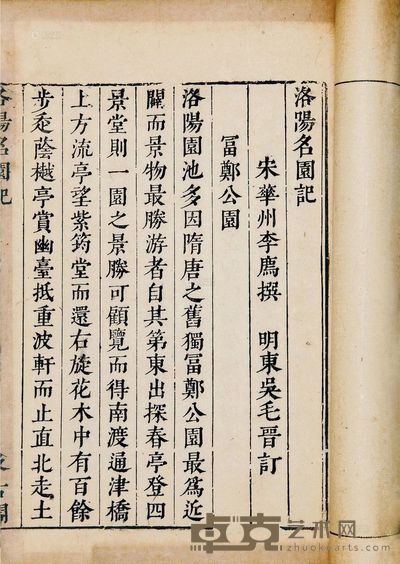 洛陽名園記
宋華州李廌撰 明東吳毛晉訂
富鄭公園
洛陽園池多因隋唐之舊獨富鄭公園最爲近
闢而景物最勝游者自其第東出探春亭登四
景堂則一園之景勝可顧覽而得南渡通津橋
上方流亭望紫筠堂而還右旋花木中有百餘
步走蔭樾亭賞幽臺抵重波軒而止直北走土
洛陽名園記
汲古閣
卓克艺术网
www.zhuokearts.com